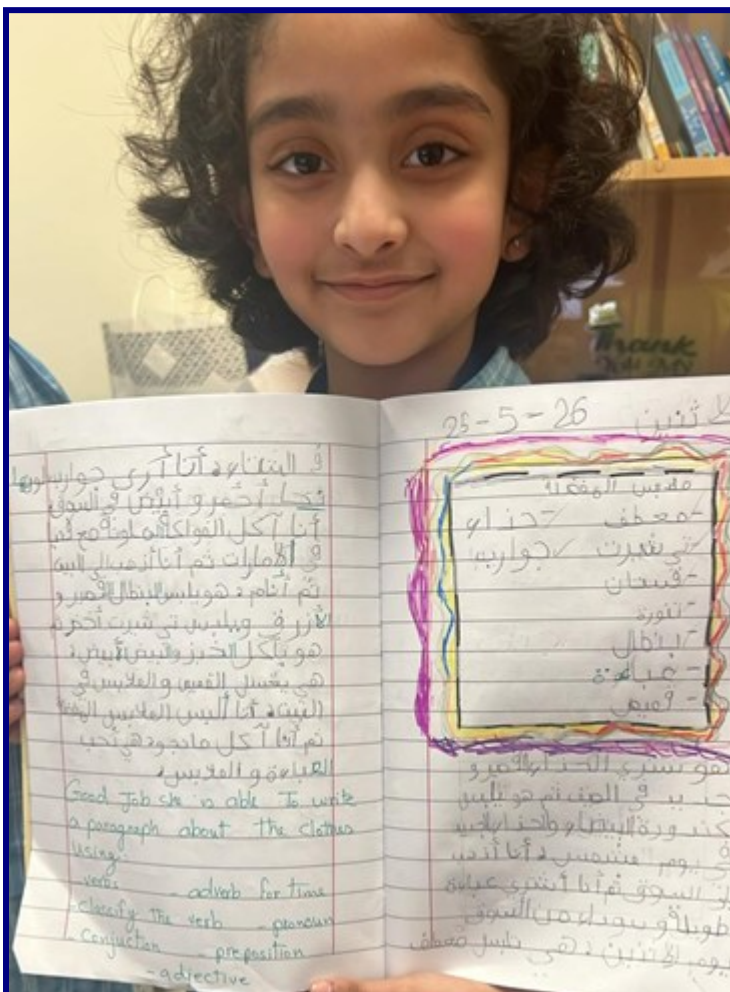 الاثنين 25-5-26
ملابس المفضلة
-معطف -حذاء
-تي شيرت جوارب
-فستان
-تنورة
-بنطال
-عباءة
- قميص
هو يشتري الحذاء الأحمر و
في الصف ثم هو يلبس
في يوم مشمس. أنا أذهب
إلى السوق ثم أنا أشتري عباءة
طويلة و سوداء من السوق
يوم الاثنين. هي تلبس معطف
في الشتاء. أنا أرى جوارب
أحمر و أبيض في السوق
أنا آكل الفواكه مع
في الامارات ثم أنا أذهب إلى البيت
ثم أنام. هو يلبس البنطال القصير و
الأزرق ويلبس تي شيرت أخضر
هو يأكل الخبز والبيض الأبيض.
هي يغسل القميص و الملابس في
البيت. أنا ألبس الملابس
ثم أنا آكل هي تحب
العباءة و الملابس.
Good Job she is able To write
a paragraph about The clothes
using:
- verbs - adverb for time
- classify The verb - pronoun
- conjuction - preposition
- adjective
Thank